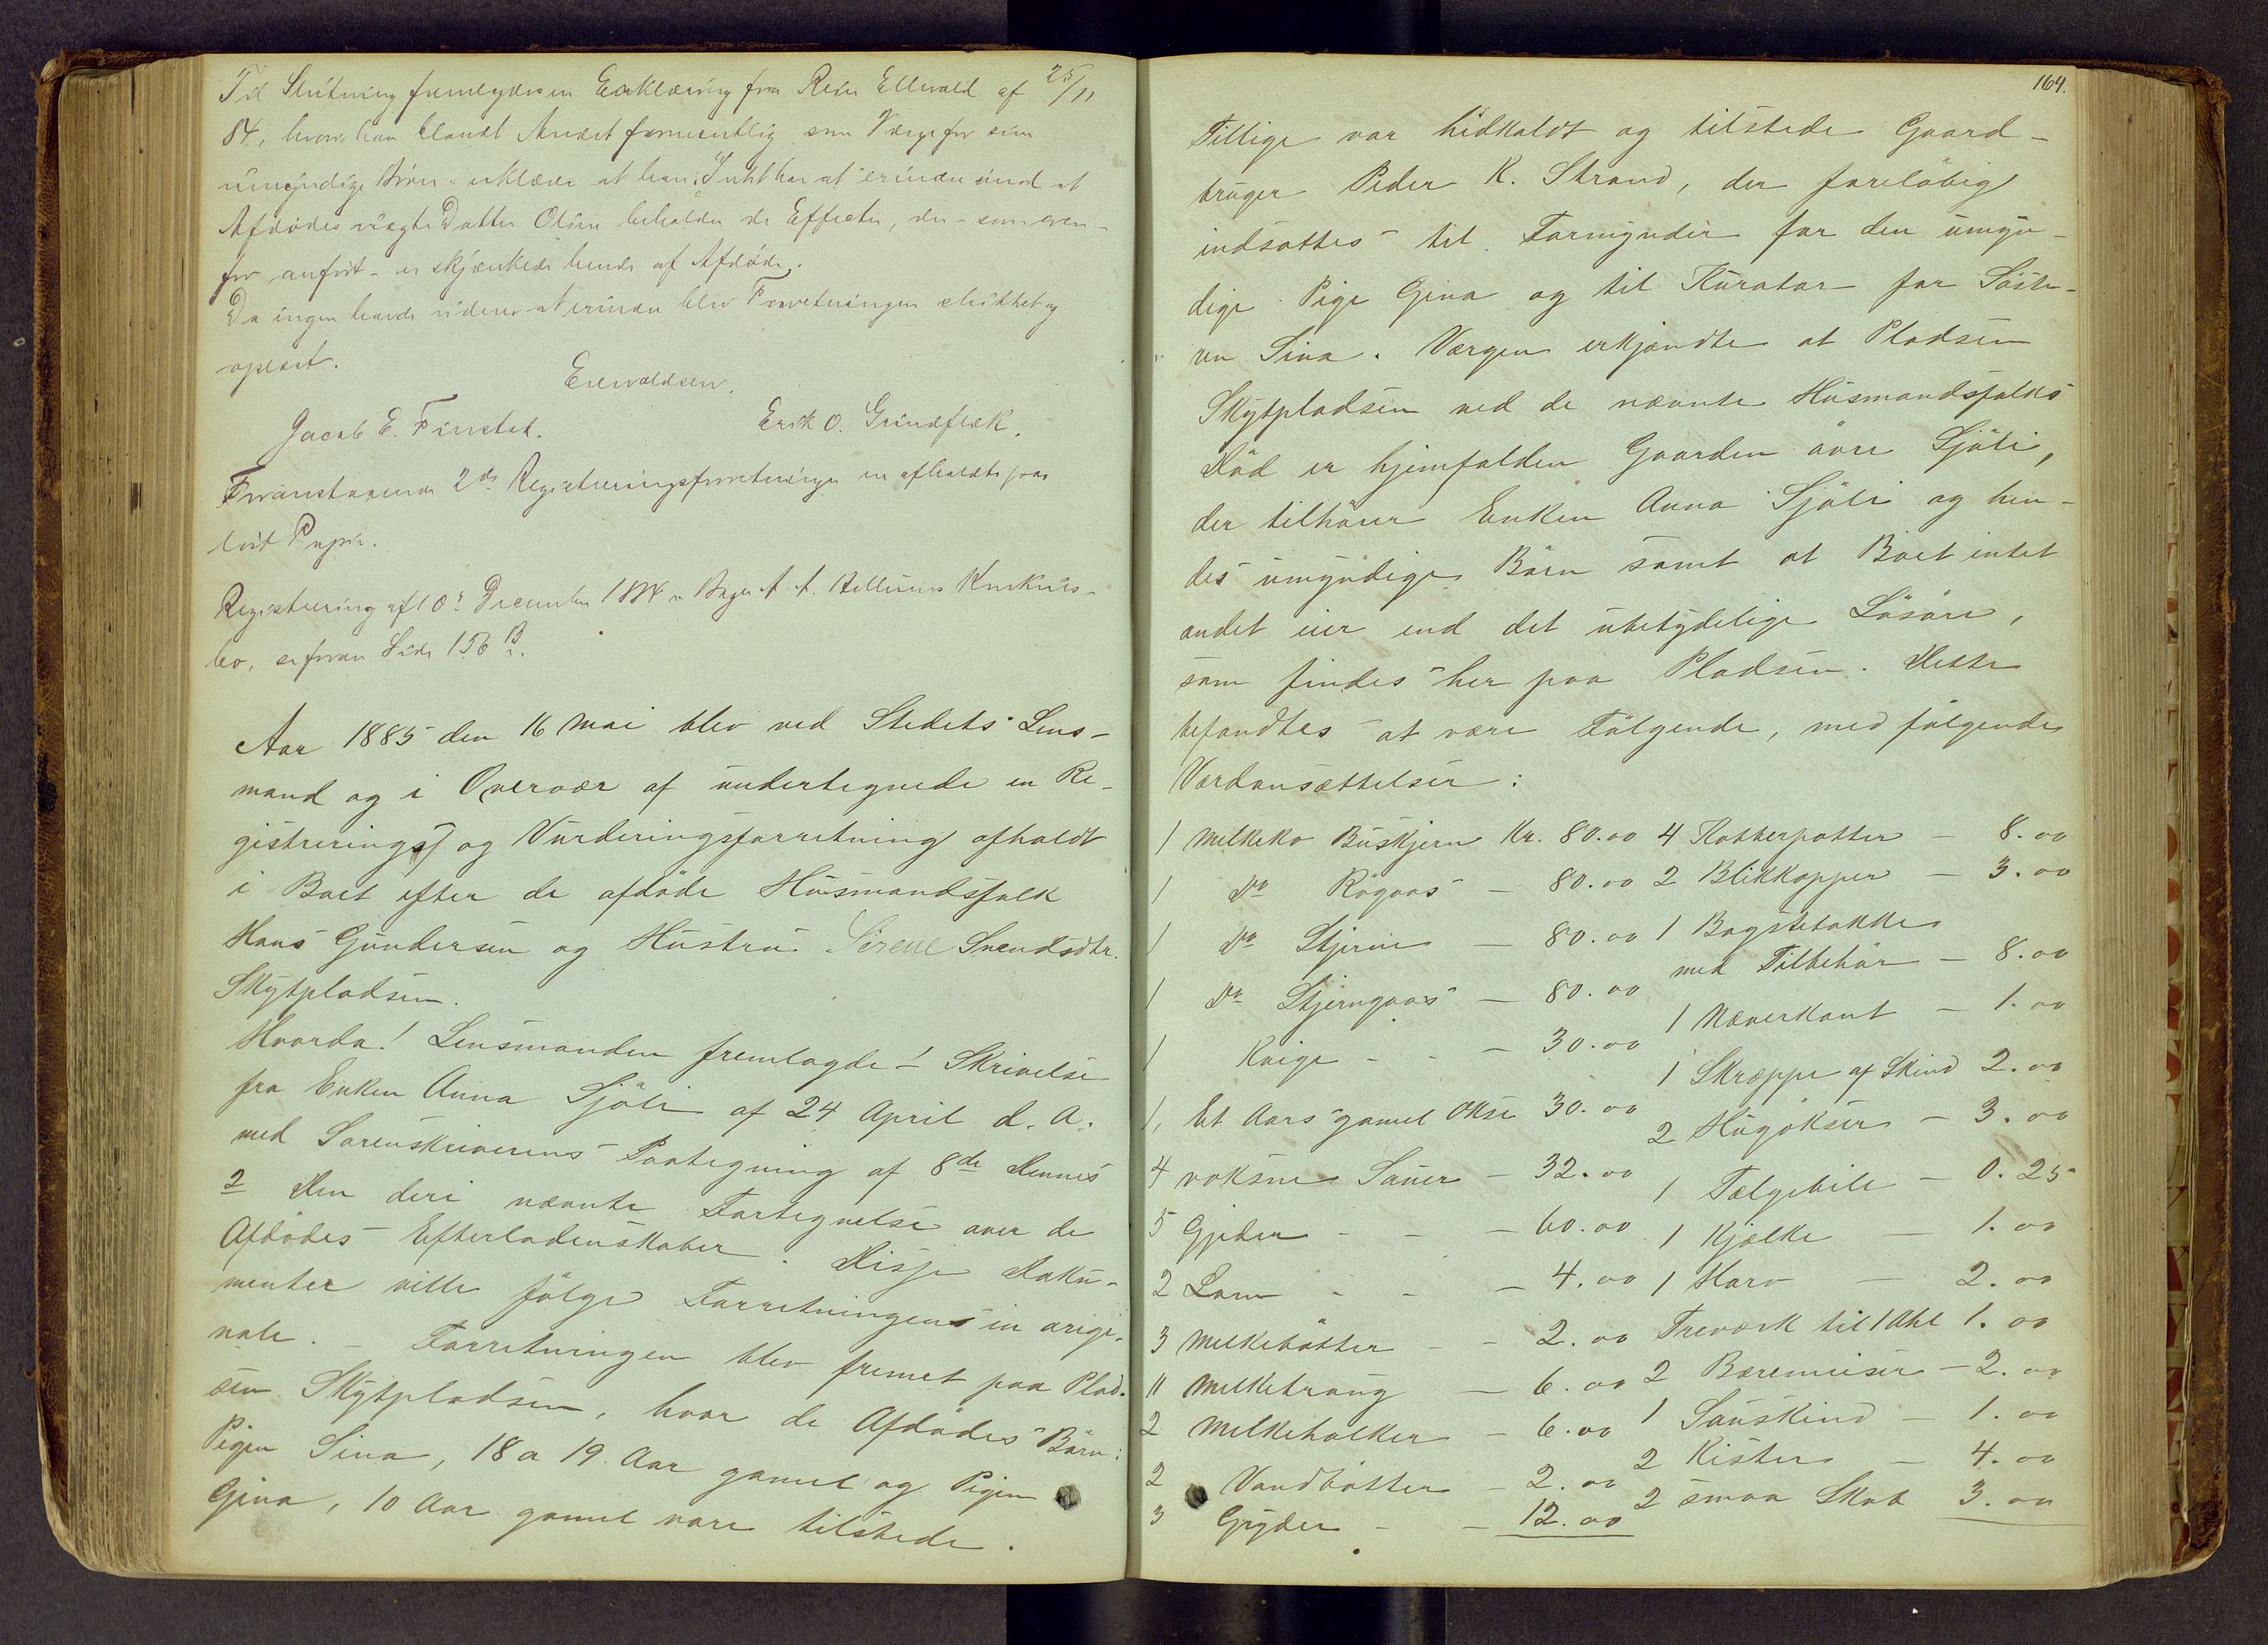 Til Slutning fremlagdes en Erklæring fra Peder Ellevold af 25/11
84, hvori han blandt Andet formentlig som Værge for sine
umyndige Børn erklærer at han Intet har at erindre imod at
Afdødes uægte Datter Oline beholder de Effecter, der – som oven-
for anført – er skjænkede hende af Afdøde.
Da ingen havde videre at erindre blev Forretningen sluttet og
oplæst.
Enevoldsen.
Jacob E. Finstad. Erik O. Grindflek.
Foranstaaende 2de Registreringsforretninger er afholdte paa
løst Papir.
Registrering af 10de December 1884
bo, se foran Side 156 B.
Aar 1885 den 16 Mai blev ved Stedets Lens-
mand og i Overvær af undertegnede en Re-
gistrerings og Vurderingsforretning afholdt
i Boet efter de afdøde Husmandsfolk
Hans Gundersen og Hustru Sirene Svendsdtr.
Skytpladsen.
Hvorda! Lensmanden fremlagde 1 Skrivelse
fra Enken Anna Sjöli af 24 April d. A.
med Sorenskriverens Paategning af 8de Dennes
2 Den deri nævnte Fortegnelse over de
Afdödes Efterladenskaber. Disse Doku-
menter ville fölge Forretningen in origi-
nale. – Forretningen blev fremet paa Plad-
sen Skytpladsen, hvor de Afdödes Börn:
Pigen Sina, 18 a 19 Aar gamel og Pigen
Gina, 10 Aar gamel vare tilstede.
164.
Tillige var hidkaldt og tilstede Gaard-
bruger Peder K. Strand, der forelöbig
indsattes til Formynder for den umyn-
dige Pige Gina og til Kurator for Söste-
ren Sina. Værgen erkjendte at Pladsen
Skytpladsen ved de nævnte Husmandsfolks
Död er hjemfalden Gaarden övre Sjöli,
der tilhörer Enken Anna Sjöli og hen-
des umyndige Börn samt at Boet intet
andet eier end det ubetydelige Lösöre,
som findes her paa Pladsen. Dette
befandtes at være Fölgende, med fölgende
Værdansættelser:
1 Melkeko Buskjern Kr. 80.00 4 Kobberpotter – 8.00
1 Do Rögaas – 80.00 2 Blikkopper – 3.00
1 Do Stjerne – 80.00 1 Bagstetakke
med Tilbehör – 8.00
1 Do Stjerngaas – 80.00
1 Næverkont – 1.00
1 Kvige – – – 30.00
1 Skræppe af Skind 2.00
1, Et Aars gamel Okse 30.00
2 Hugökser – 3.00
4 voksne Sauer – 32.00
1 Tælgebile – 0.25
5 Gjeder – – – 60.00 1 Kjælke – 1.00
2 Lam – – – 4.00 1 Harv – 2.00
3 Melkebötter – – 2.00 Treværk til 1 Ahl 1.00
11 Melketraug – 6.00 2 Bæremeiser – 2.00
2 Melkeholker – 6.00 1 Sauskind – 1.00
2 Vandbötter – 2.00 2 Kister – 4.00
3 Gryder – – 12.00 2 smaa Skab 3.00